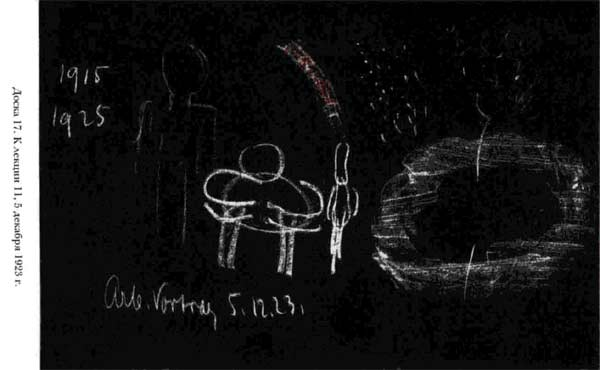 Доска 17. К лекции 11, 5 декабря 1923 г.
1915
1925
Arb. Vortrag 5.12.23.